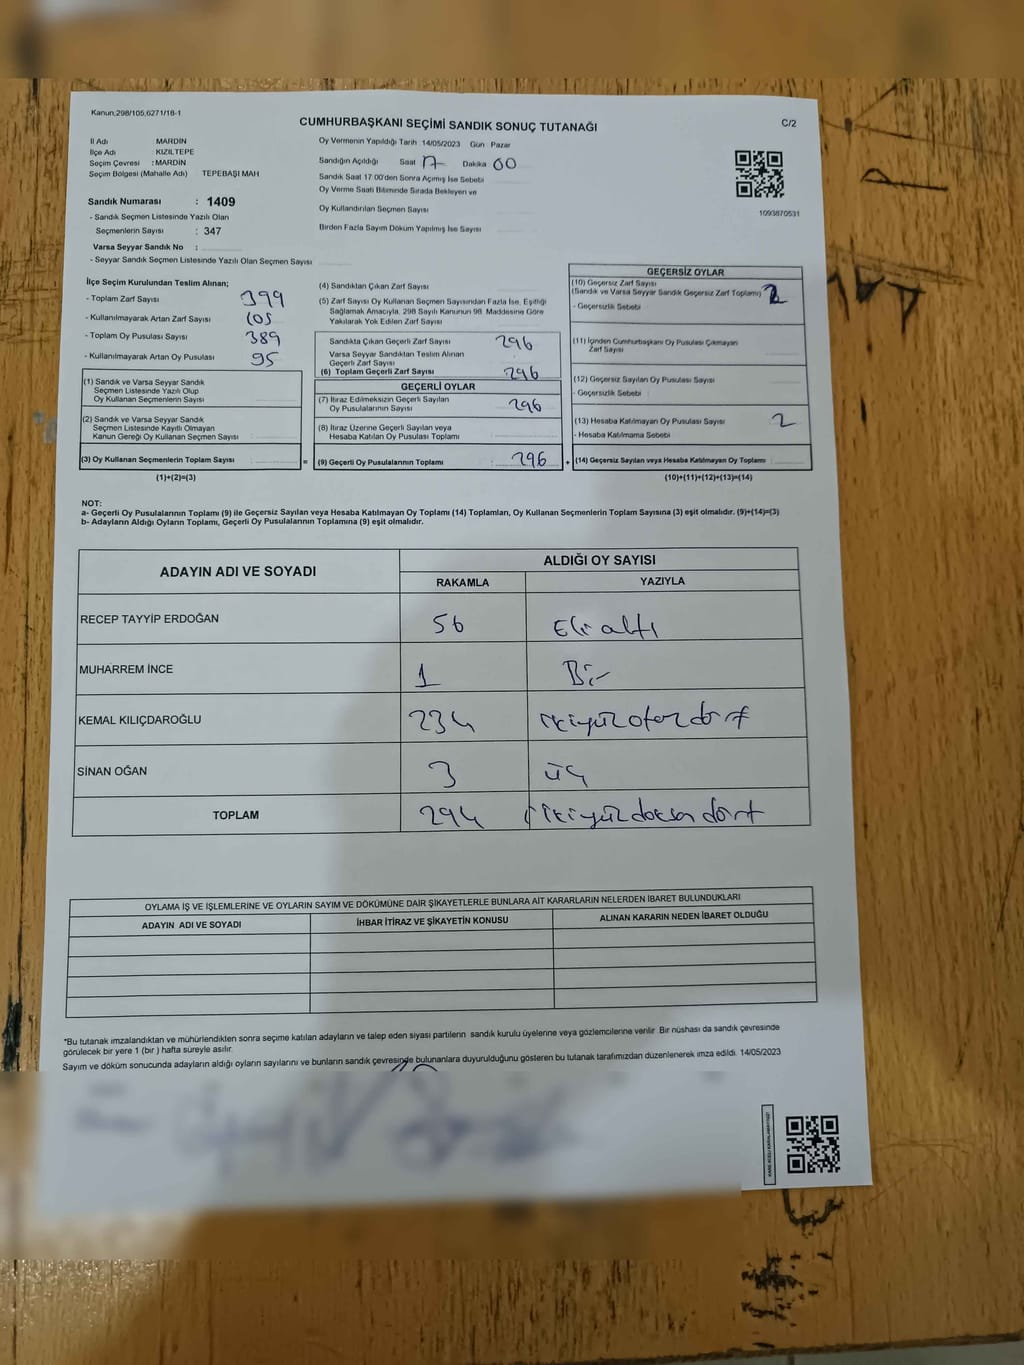 Kanun,298/105,6271/18-1
CUMHURBAŞKANI SEÇİMİ SANDIK SONUÇ TUTANAĞI
C/2
İl Adı MARDİN
İlçe Adı KIZILTEPE
Seçim Çevresi : MARDİN
Seçim Bölgesi (Mahalle Adı) TEPEBAŞI MAH
Oy Vermenin Yapıldığı Tarih 14/05/2023 Gün Pazar
Sandığın Açıldığı Saat 17 Dakika 00
Sandık Saat 17:00'den Sonra Açımış İse Sebebi
Oy Verme Saati Bitiminde Sırada Bekleyen ve
Oy Kullandırılan Seçmen Sayısı
Birden Fazla Sayım Döküm Yapılmış İse Sayısı
1093870531
Sandık Numarası : 1409
- Sandık Seçmen Listesinde Yazılı Olan
Seçmenlerin Sayısı : 347
Varsa Seyyar Sandık No :
- Seyyar Sandık Seçmen Listesinde Yazılı Olan Seçmen Sayısı
İlçe Seçim Kurulundan Teslim Alınan;
- Toplam Zarf Sayısı 399
- Kullanılmayarak Artan Zarf Sayısı 105
- Toplam Oy Pusulası Sayısı 389
- Kullanılmayarak Artan Oy Pusulası 95
(1) Sandık ve Varsa Seyyar Sandık
Seçmen Listesinde Yazılı Olup
Oy Kullanan Seçmenlerin Sayısı
(2) Sandık ve Varsa Seyyar Sandık
Seçmen Listesinde Kayıtlı Olmayan
Kanun Gereği Oy Kullanan Seçmen Sayısı
(3) Oy Kullanan Seçmenlerin Toplam Sayısı
(1)+(2)=(3)
(4) Sandıktan Çıkan Zarf Sayısı
(5) Zarf Sayısı Oy Kullanan Seçmen Sayısından Fazla İse, Eşitliği
Sağlamak Amacıyla, 298 Sayılı Kanunun 98. Maddesine Göre
Yakılarak Yok Edilen Zarf Sayısı
Sandıkta Çıkan Geçerli Zarf Sayısı 296
Varsa Seyyar Sandıktan Teslim Alınan
Geçerli Zarf Sayısı
(6) Toplam Geçerli Zarf Sayısı 296
GEÇERLİ OYLAR
(7) İtiraz Edilmeksizin Geçerli Sayılan
Oy Pusulalarının Sayısı 296
(8) İtiraz Üzerine Geçerli Sayılan veya
Hesaba Katılan Oy Pusulası Toplamı
= (9) Geçerli Oy Pusulalarının Toplamı : 296 +
GEÇERSİZ OYLAR
(10) Geçersiz Zarf Sayısı
(Sandık ve Varsa Seyyar Sandık Geçersiz Zarf Toplamı) 2
- Geçersizlik Sebebi
(11) İçinden Cumhurbaşkanı Oy Pusulası Çıkmayan
Zarf Sayısı
(12) Geçersiz Sayılan Oy Pusulası Sayısı
- Geçersizlik Sebebi
(13) Hesaba Katılmayan Oy Pusulası Sayısı 2
- Hesaba Katılmama Sebebi
(14) Geçersiz Sayılan veya Hesaba Katılmayan Oy Toplamı
(10)+(11)+(12)+(13)=(14)
NOT:
a- Geçerli Oy Pusulalarının Toplamı (9) ile Geçersiz Sayılan veya Hesaba Katılmayan Oy Toplamı (14) Toplamları, Oy Kullanan Seçmenlerin Toplam Sayısına (3) eşit olmalıdır. (9)+(14)=(3)
b- Adayların Aldığı Oyların Toplamı, Geçerli Oy Pusulalarının Toplamına (9) eşit olmalıdır.
ADAYIN ADI VE SOYADI
ALDIĞI OY SAYISI
RAKAMLA YAZIYLA
RECEP TAYYİP ERDOĞAN 56 Elli altı
MUHARREM İNCE 1 Bir
KEMAL KILIÇDAROĞLU 234 ikiyüzotuzdört
SİNAN OĞAN 3 üç
TOPLAM 294 ikiyüzdoksandört
OYLAMA İŞ VE İŞLEMLERİNE VE OYLARIN SAYIM VE DÖKÜMÜNE DAİR ŞİKAYETLERLE BUNLARA AİT KARARLARIN NELERDEN İBARET BULUNDUKLARI
ADAYIN ADI VE SOYADI İHBAR İTİRAZ VE ŞİKAYETİN KONUSU ALINAN KARARIN NEDEN İBARET OLDUĞU
*Bu tutanak imzalandıktan ve mühürlendikten sonra seçime katılan adayların ve talep eden siyasi partilerin sandık kurulu üyelerine veya gözlemcilerine verilir. Bir nüshası da sandık çevresinde
görülecek bir yere 1 (bir) hafta süreyle asılır.
Sayım ve döküm sonucunda adayların aldığı oyların sayılarını ve bunların sandık çevresinde bulunanlara duyurulduğunu gösteren bu tutanak tarafımızdan düzenlenerek imza edildi. 14/05/2023